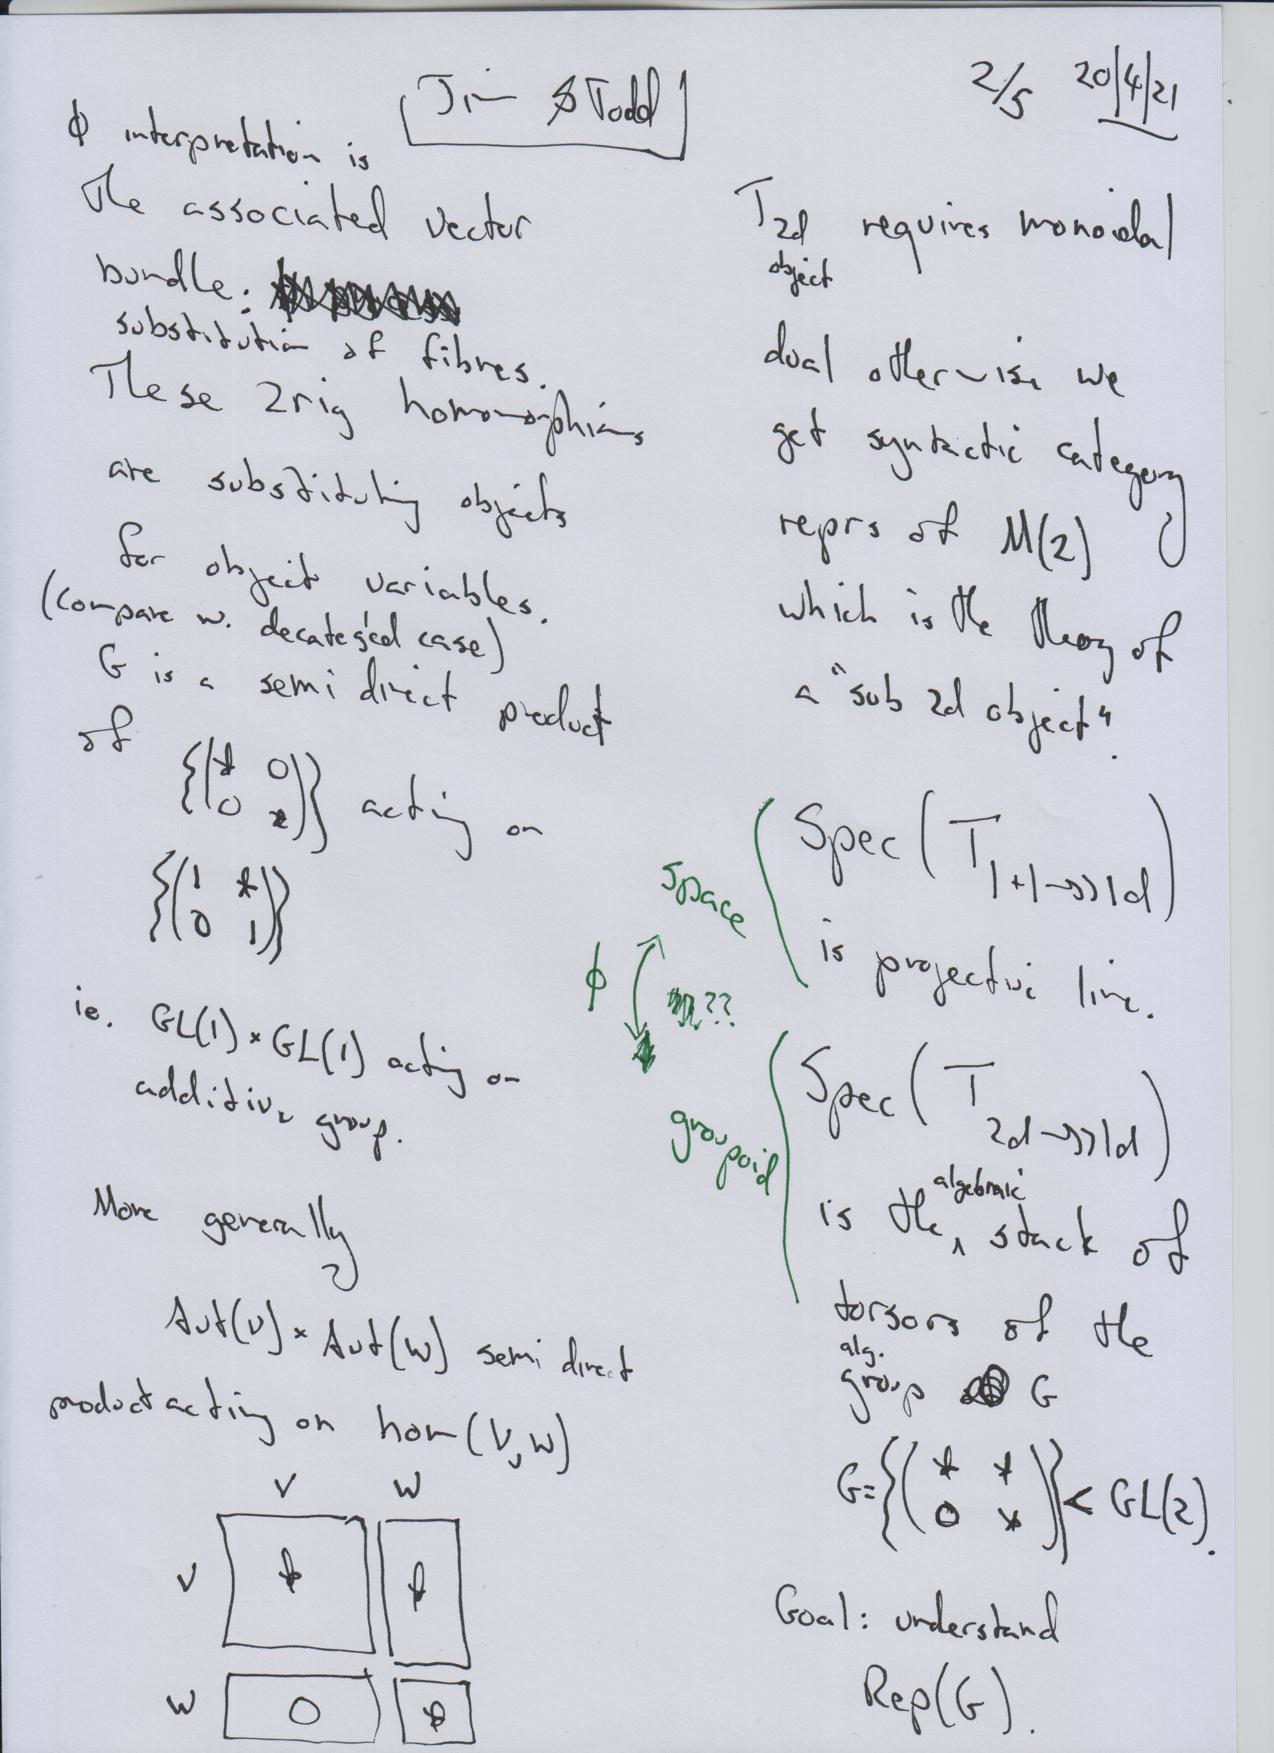 Jim & Todd
2/5 20/4/21
ϕ interpretation is
the associated vector
bundle:
substitution of fibres.
These 2rig homomorphisms
are substituting objects
for object variables.
(compare w. decateg'd case)
G is a semi direct product
of {(* 0
0 *)} acting on
{(1 *
0 1)}
ie. GL(1) × GL(1) acting on
additive group.
More generally
Aut(V) × Aut(W) semi direct
product acting on hom(V,W)
V W
V * *
W 0 *
T2d requires monoidal
object
dual otherwise we
get syntactic category
reprs of M(2)
which is the theory of
a "sub 2d object".
Spec(T1+1→>>1d)
is projective line.
space
ϕ ??
groupoid
Spec(T2d→>>1d)
is the algebraic stack of
torsors of the
alg.
group G
G={(* *
0 *)} < GL(2).
Goal: understand
Rep(G).